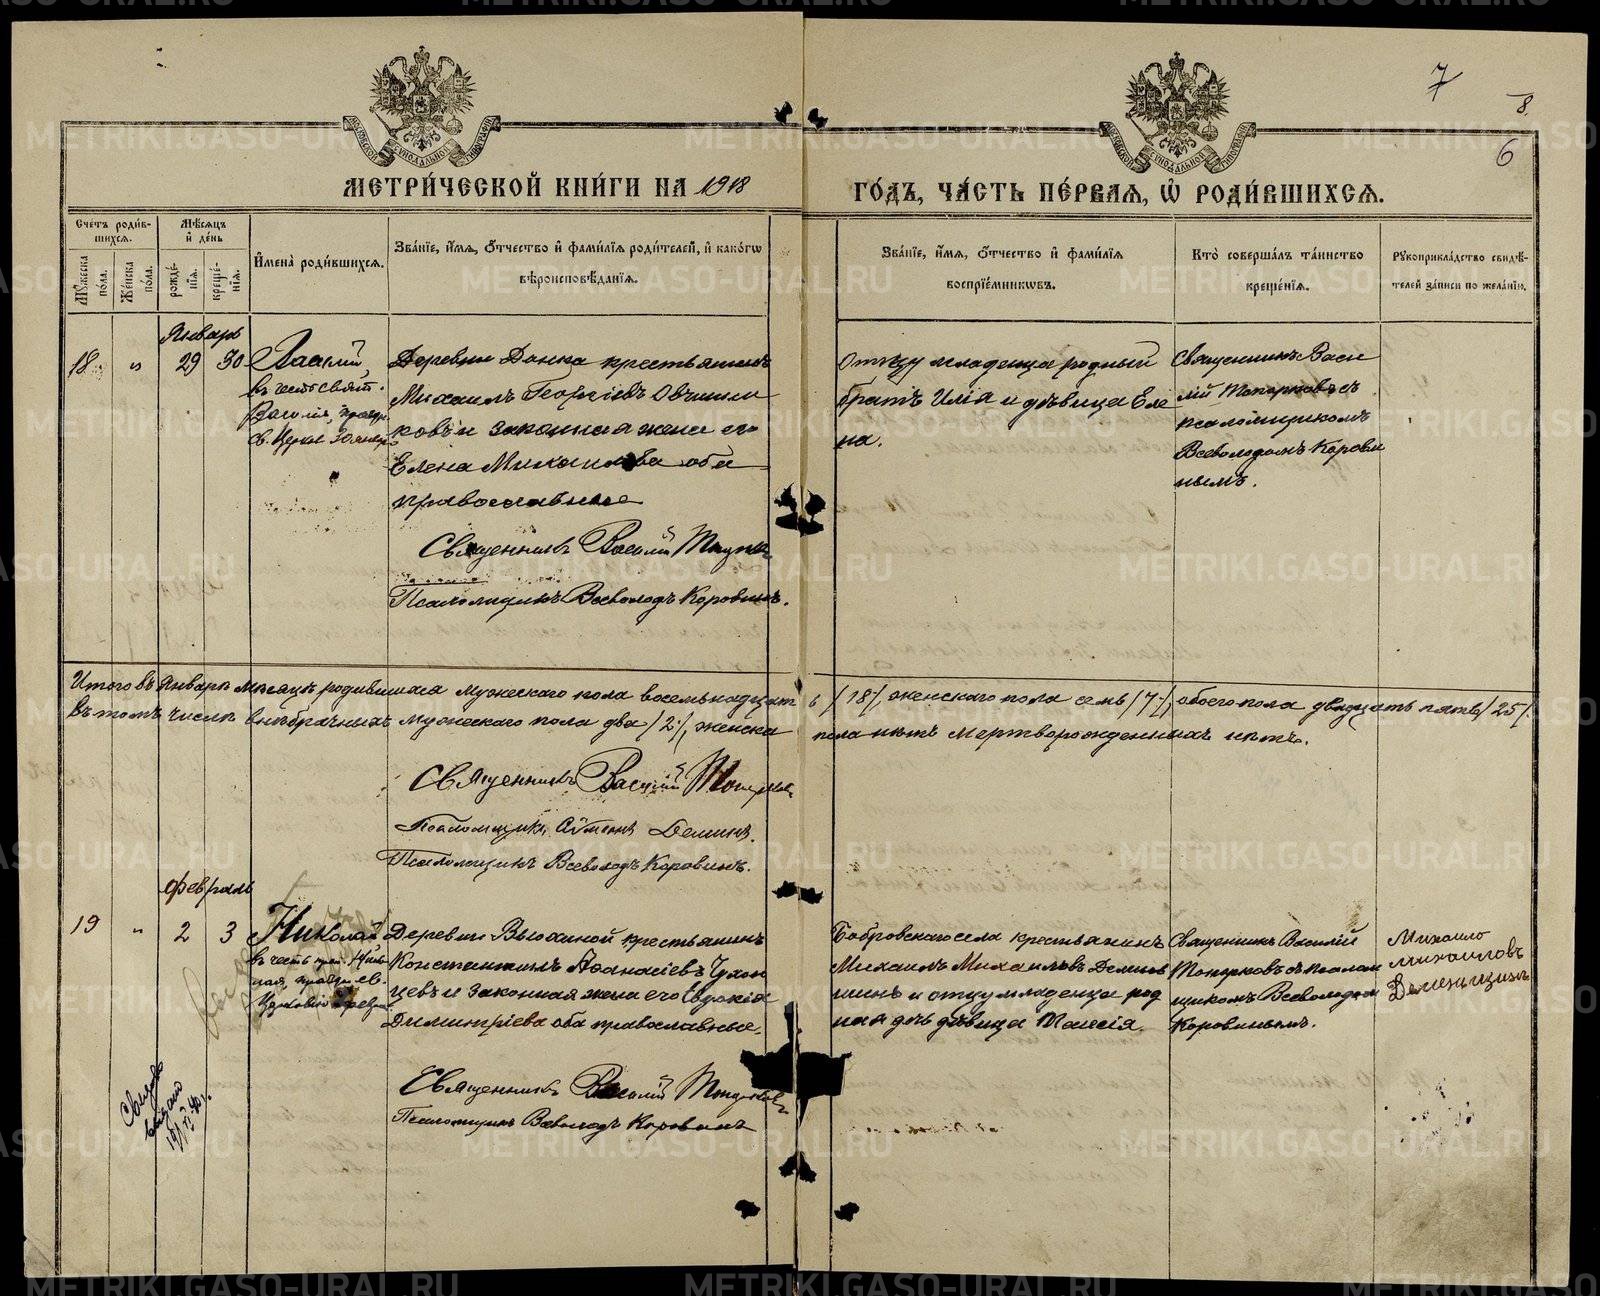 7
8
6
МЕТРИ́ЧЕСКОЙ КНИ́ГИ НА 1918
ГО́ДЪ, ЧА́СТЬ ПЕ́РВАЯ, Ѡ РОДИ́ВШИХСЯ.
Сче́тъ роди́в-
шихся.
Мѣ́сяцъ
и҆ де́нь
Мꙋ́жеска
по́ла.
Же́нска
по́ла.
рожде́-
нїя.
креще́-
нїя.
И҆мена̀ роди́вшихся.
Зва́нїе, и҆́мя, о҆́тчество и҆ фами́лїя роди́телей, и҆ како́гѡ
вѣроисповѣ́данїя.
Зва́нїе, и҆́мя, о҆́тчество и҆ фами́лїя
воспрїе́мникѡвъ.
Кто̀ соверша́лъ та́инство
креще́нїя.
Рꙋкоприкла́дство свидѣ́-
телей за́писи по жела́нїю.
Январь
18 " 29 30
въ честь свят.
Василія, празд.
св. Церк. 30 янв.
Деревни крестьянинъ
Михаилъ Георгіевъ Овчинни
ковъ и законная жена его
Елена Михаилова оба
православные
Священникъ Василій Топорк
Псаломщикъ Всеволодъ Коровинъ.
Отцу младенца родный
братъ Илія и дѣвица Еле
на.
Священникъ Васи
лій Топорковъ съ
псаломщикомъ
Всеволодомъ Корови
нымъ.
Итого въ Январѣ мѣсяцѣ родившихся мужескаго пола восемьнадцат ь /18/, женскаго пола семь /7/, обоего пола двадцать пять /25/.
Въ томъ числѣ внѣбрачныхъ мужескаго пола два /2/, женска пола нѣтъ мертворожденныхъ нѣтъ.
Священникъ Василій Топорков
Псаломщикъ Деминъ.
Псаломщикъ Всеволодъ Коровинъ.
Февраль
19 " 2 3
Николай,
въ честь
празд. св.
Церковію феврал
Деревни Вьюхиной крестьянинъ
Константинъ Аѳанасіевъ Чухон
цевъ и законная жена его Евдокія
Димитріева оба православные.
Священникъ Василій Топорков
Псаломщикъ Всеволодъ Коровинъ
Бобровскаго села крестьянинъ
Михаилъ Михаиловъ Деменьш
шинъ и отцу младенца род
ная дочь дѣвица Таисія.
Священникъ Василій
Топорковъ съ псалом
щикомъ Всеволодомъ
Коровинымъ.
Михаило
Михаиловъ
Свид.
выдано